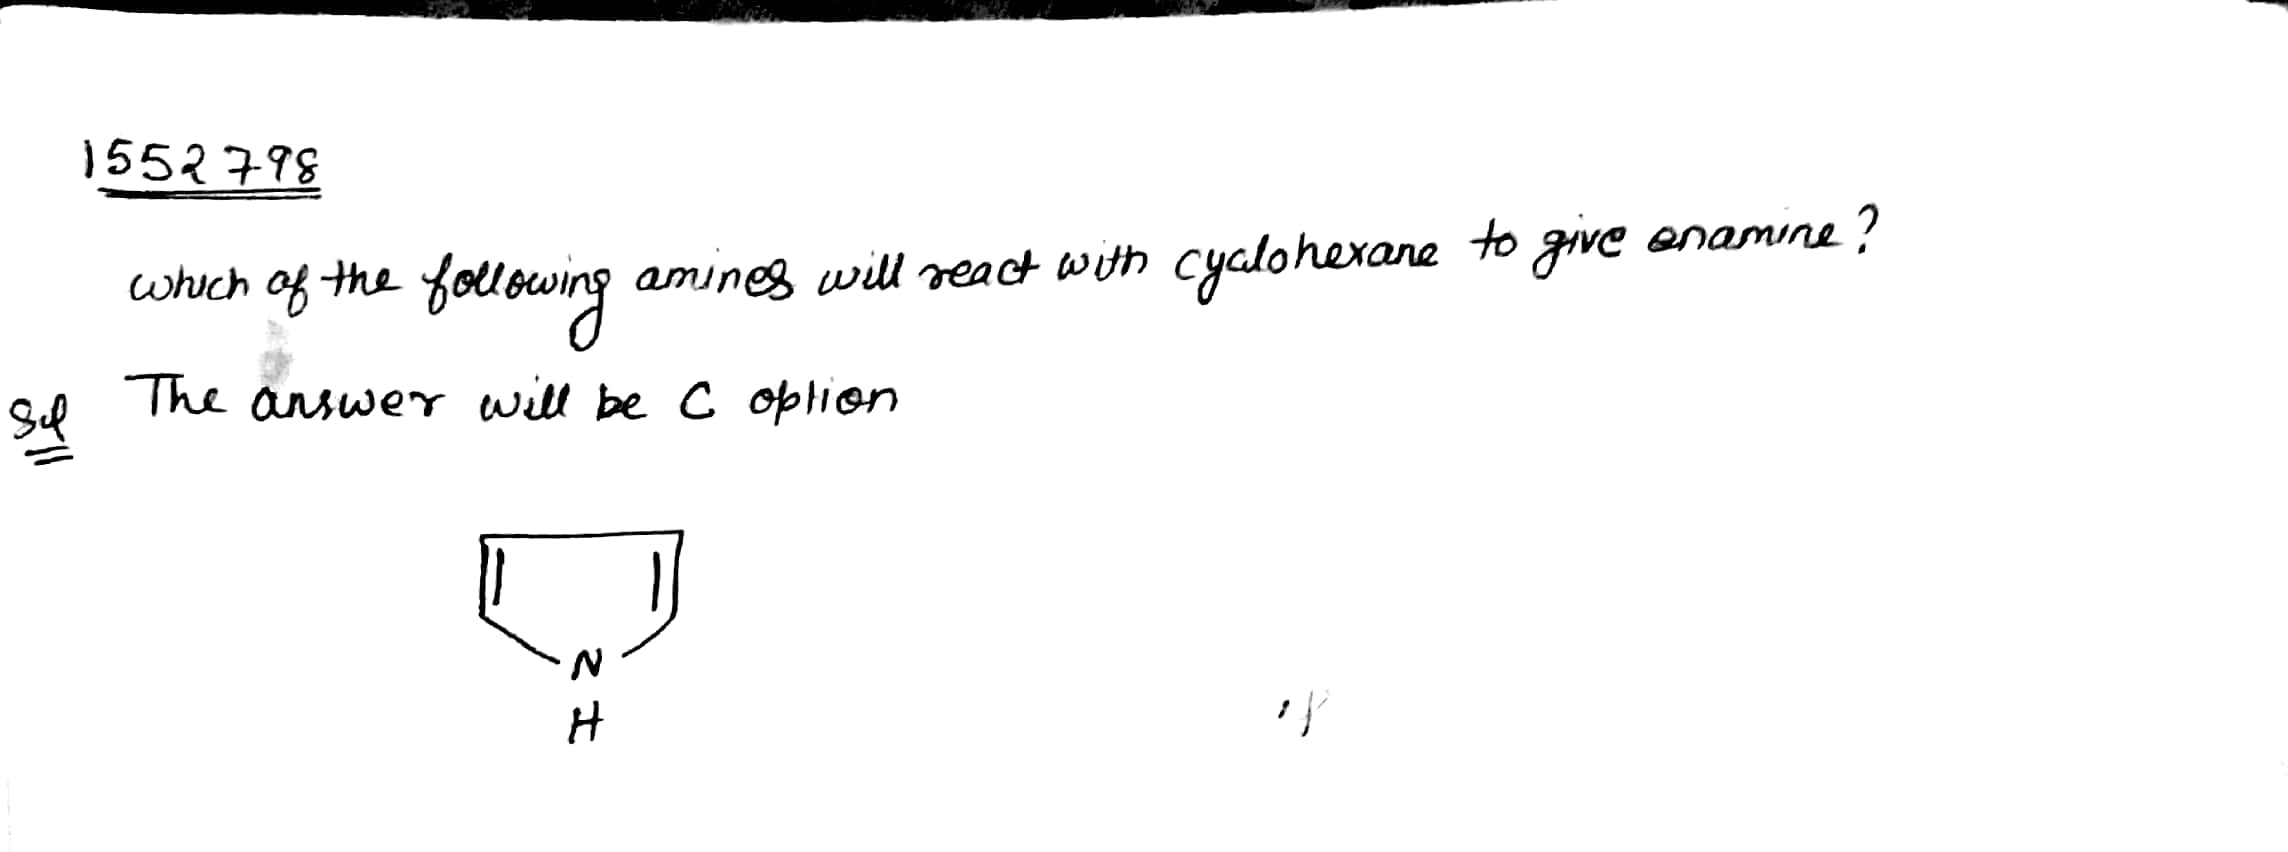 1552798
which of the following amines will react with cyclohexane to give enamine?
Sol The answer will be C option
N
H